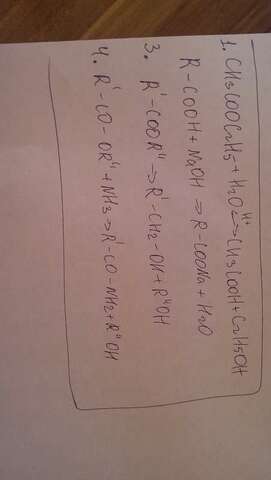 1. CH3COOC2H5 + H2O ⇄ H⁺ CH3COOH + C2H5OH
R-COOH + NaOH ⇒ R-COONa + H2O
3. R'-COOR'' ⇒ R'-CH2-OH + R''OH
4. R'-CO-OR'' + NH3 ⇒ R'-CO-NH2 + R''OH